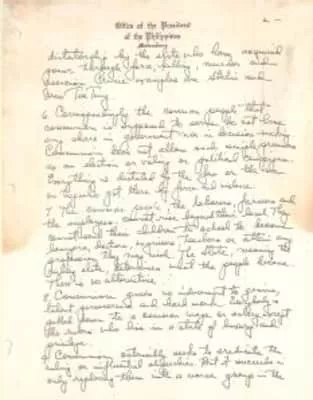 2 -
Office of the President
of the Philippines
Malacañang
dictatorship by the elite who have acquired
power through force, killing, murder and
Prime examples are Stalin and
Mao Tse Tung
6. Correspondingly the common people that
communism is supposed to serve do not have
any share in government nor in decision making
Communism does not allow such simple processes
as an election or voting or political campaign.
Everything is dictated by the few or the one
who got there by force and violence.
7. The common people, the laborers, farmers and
the employees cannot rise beyond their level. They
cannot send their children to school to become
lawyers, doctors, engineers, teachers or attain any
profession they may wish. The state, meaning the
ruling elite, determines what the people become.
There is no alternative.
8. Communism gives no incentive to genius,
talent, perseverance and hard work. Everybody is
pulled down to a common wage or salary except
the rulers who live in a state of luxury and
privilege.
9. Communism ostensibly seeks to eradicate the
ruling or influential oligarchies. But it succeeds in
only replacing them with a worse group in the